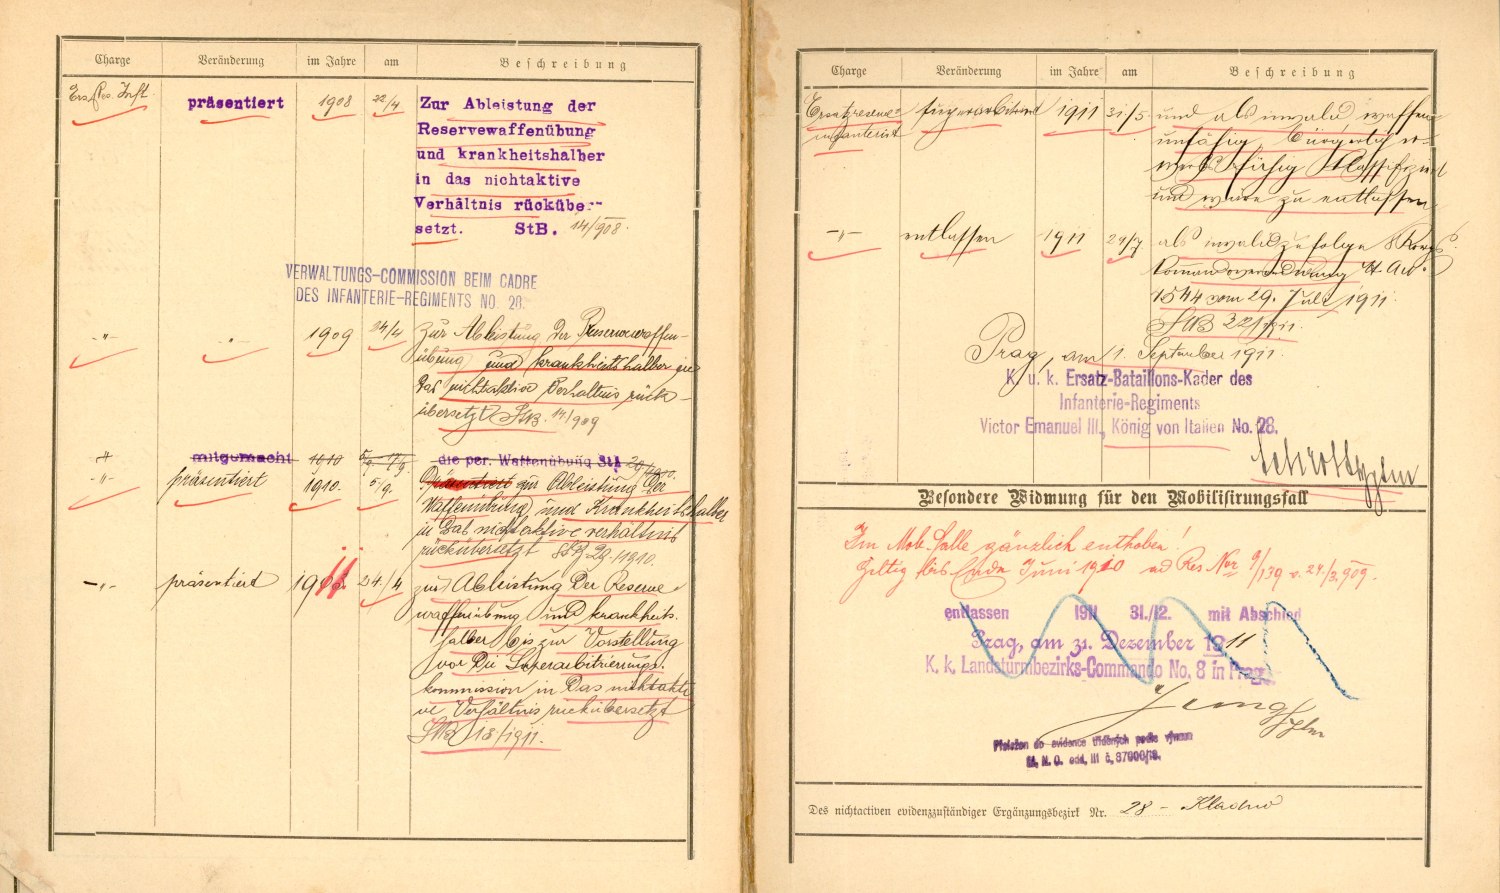 Charge Veränderung im Jahre am Beschreibung
Ers. Res. Inft präsentiert 1908 22/4 Zur Ableistung der
Reservewaffenübung
und krankheitshalber
in das nichtaktive
Verhältnis rücküber-
setzt. StB. 14/908.
VERWALTUNGS-COMMISSION BEIM CADRE
DES INFANTERIE-REGIMENTS NO. 28.
-"- -"- 1909 24/4 Zur Ableistung der Reservewaffen-
übung und krankheitshalber in
das nichtaktive Verhältnis rück-
übersetzt StB. 14/909
-"- mitgemacht 1910 die per. Waffenübung StB 29/1910.
-"- präsentiert 1910. 5/9. Präsentiert zur Ableistung der
Waffenübung und Krankheitshalber
in das nichtaktive verhältnis
rückübersetzt StB 29/1910.
-"- präsentiert 1911 24./4 zur Ableistung der Reserve
waffenübung und krankheits.
halber bis zur Vorstellung
vor die Superarbitrierungs.
kommission in das nichtakti
ve Verhältnis rückübersetzt
StB 18/1911.
Charge Veränderung im Jahre am Beschreibung
Ersatzreserve- superarbitriert 1911 31/5. und als invalid waffen-
infanterist unfähig, bürgerlich er-
werbsfähig klassifiziert
und wurde zu entlassen
-"- entlassen 1911 29/7 als invalid zufolge 8 Korps
Kommandoverordnung
1544 vom 29. Juli 1911.
StB 32/1911.
Prag, am 1. September 1911.
K. u. k. Ersatz-Bataillons-Kader des
Infanterie-Regiments
Victor Emanuel III., König von Italien No. 28.
Besondere Widmung für den Mobilisirungsfall
Im Mob. falle gänzlich enthoben!
Giltig bis Ende Juni 1910 ad Res. Nor 9/139 v. 24./3. 909.
entlassen 1911 31./12. mit Abschied
Prag, am 31. Dezember 1911
K. k. Landsturmbezirks-Commando No. 8 in Prag
Přeložen do evidence tříděných podle výnosu
Des nichtactiven evidenzzuständiger Ergänzungsbezirk Nr. 28 - Kladno